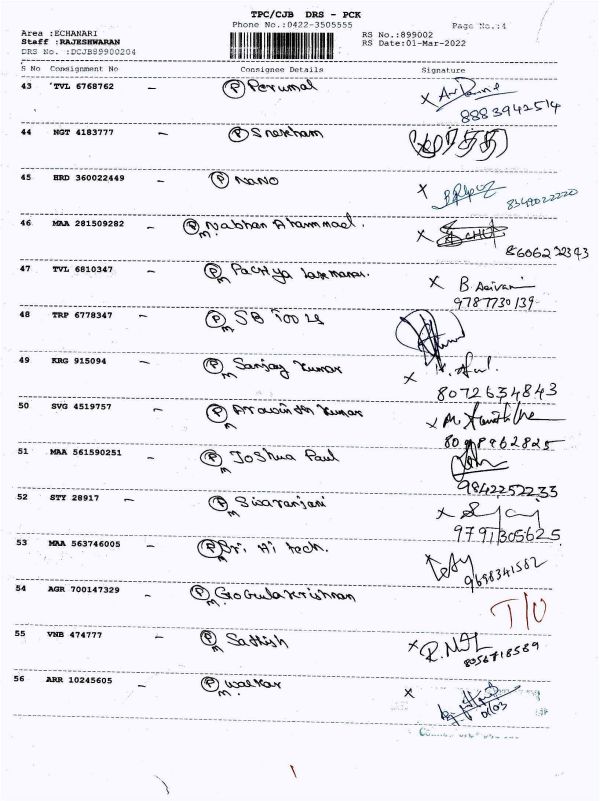 TPC/CJB DRS - PCK
Phone No.:0422-3505555
Page No.:4
Area :ECHANARI
Staff :RAJESHWARAN
DRS No. :DCJB89900204
RS No.:899002
RS Date:01-Mar-2022
S No Consignment No Consignee Details Signature
43 TVL 6768762 - P Perumal X
8883942514
44 NGT 4183777 - P Snekham
45 HRD 360022449 - P NANO X
8349022220
46 MAA 281509282 - P M Nabhan Ahammad. X
8606222343
47 TVL 6810347 - P M X B.
9787730139
48 TRP 6778347 - P M SB Tools
49 KRG 915094 - P M Sanjay Kumar X
8072634843
50 SVG 4519757 - P M Aravindh Kumar X
51 MAA 561590251 - P M Joshua Paul
9842252233
52 STY 28917 - P M Sivaranjani X
9791305625
53 MAA 563746005 - P M Sri Hi tech. X
9698341582
54 AGR 700147329 - P M Gokulakrishnan T/O
55 VNB 474777 - P M Sathish X
8056718589
56 ARR 10245605 - P M Walkar X
01/03